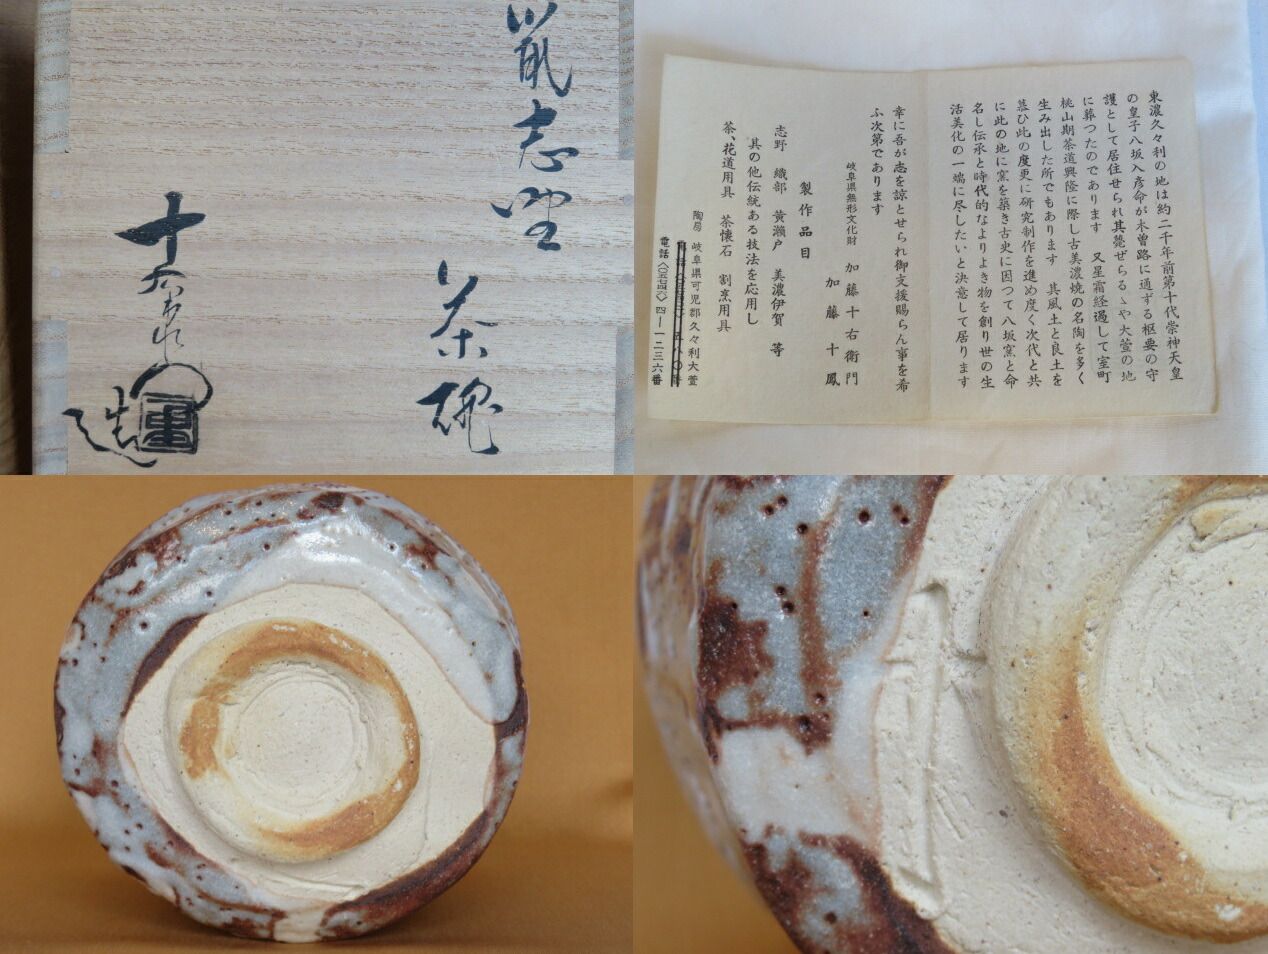 鼠志野
茶碗
十右衛門
造
東濃久々利の地は約二千年前第十代崇神天皇
の皇子八坂入彦命が木曽路に通ずる枢要の守
護として居住せられ其薨ぜらるゝや大萱の地
に葬つたのであります 又星霜経過して室町
桃山期茶道興隆に際し古美濃焼の名陶を多く
生み出した所でもあります 其風土と良土を
慕ひ此の度更に研究制作を進め度く次代と共
に此の地に窯を築き古史に因つて八坂窯と命
名し伝承と時代的なよりよき物を創り世の生
活美化の一端に尽したいと決意して居ります
幸に吾が志を諒とせられ御支援賜らん事を希
ふ次第であります
岐阜県無形文化財 加藤十右衛門
加藤十鳳
製作品目
志野 織部 黄瀬戸 美濃伊賀 等
其の他伝統ある技法を応用し
茶、花道用具 茶懐石 割烹用具
陶房 岐阜県可児郡久々利大萱
電話〈〇五七四六〉四―一二三六番